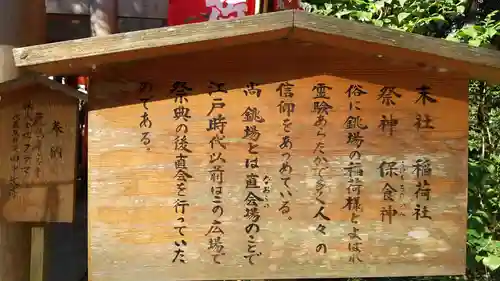 末社 稲荷社
祭神 保食神
俗に銚場の稲荷様とよばれ
霊験あらたかで多く人々の
信仰をあつめている。
尚 銚場とは直会場のことで
なおらい
江戸時代以前はこの広場で
祭典の後直会を行っていた
のである。
奉納